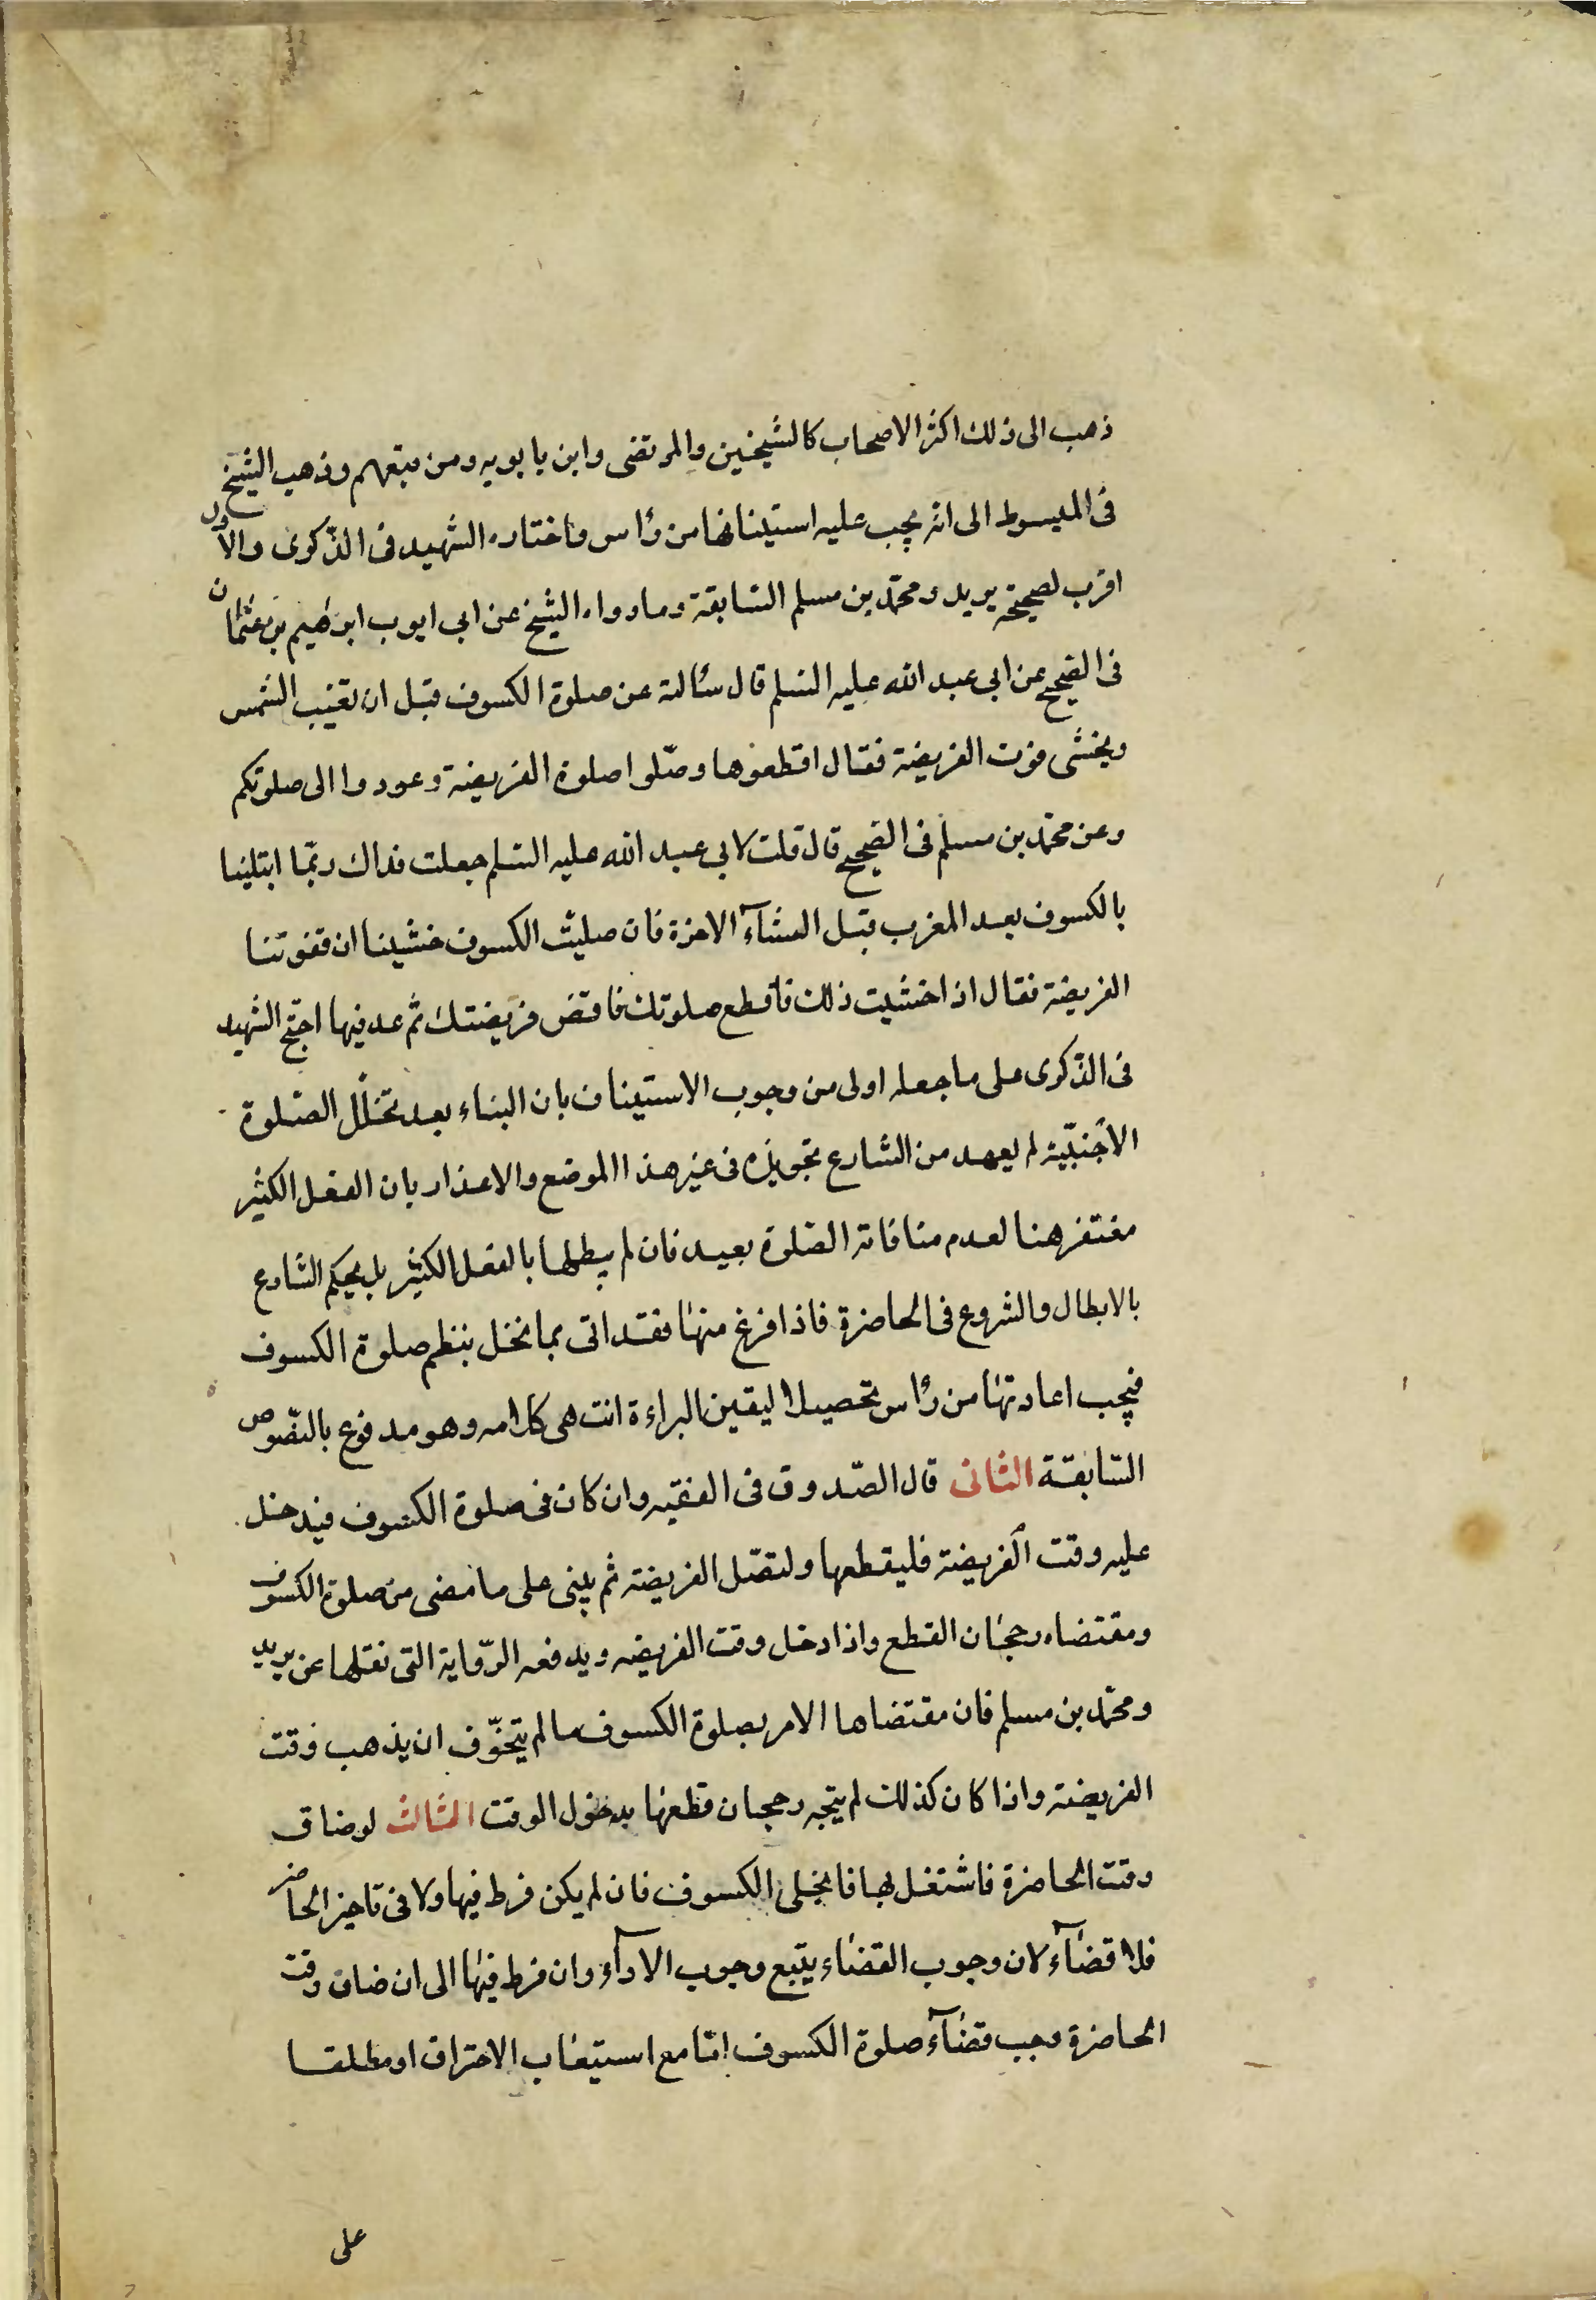 ذهب الى ذلك اكثر الاصحاب كالشيخين والمرتضى وابن بابويه ومن تبعهم وذهب الشيخ
فى المبسوط الى انه يجب عليه استينافها من رأس واختاره الشهيد فى الذّكرى والاول
اقرب لصحيحة بريد ومحمّد بن مسلم السّابقة وما رواه الشيخ عن ابى ايوب ابرهيم بن عثمان
فى الصّحيح عن ابى عبد الله عليه السّلم قال سئالته عن صلوة الكسوف قبل ان تغيب الشمس
ويخشى فوت الفريضة فقال اقطعوها وصّلوا صلوة الفريضة وعودوا الى صلوتكم
وعن محمّد بن مسلم فى الصّحيح قال قلت لابى عبد الله عليه السّلم جعلت فداك ربّما ابتلينا
بالكسوف بعد المغرب قبل العشآء الاخرة فان صليّت الكسوف خشينا ان تفوتنا
الفريضة فقال اذا خشيت ذلك فاقطع صلوتك فاقض فريضتك ثم عد فيها احتجّ الشهيد
فى الذّكرى على ما جعله اولى من وجوب الاستيناف بان البناء بعد تخلّل الصّلوة
الاجنبّية لم يعهد من الشارع تجويزه فى غير هذا الموضع والاعذار بان الفعل الكثير
مغتفر هنا لعدم منافاته الصّلوة بعيد فان لم يبطلها بالفعل الكثير بل بحكم الشارع
بالابطال والشروع فى الحاضرة فاذا فرغ منها فقد اتى بما يخل بنظم صلوة الكسوف
فيجب اعادتها من رأس تحصيلا ليقين البراءة انتهى كلامه وهو مدفوع بالنّصوص
السّابقة الثانى قال الصّدوق فى الفقيه وان كان فى صلوة الكسوف فيدخل
عليه وقت الفريضة فليقطعها ولتصّل الفريضة ثم يبنى على ما مضى من صلوة الكسوف
ومقتضاه رجحان القطع واذا دخل وقت الفريضه ويدفعه الرّواية التى نقلها عن بريد
ومحمّد بن مسلم فان مقتضاها الامر بصلوة الكسوف ما لم يتخوّف ان يذهب وقت
الفريضة واذا كان كذلك لم يتجه رجحان قطعها بدخول الوقت الثالث لو ضاق
وقت الحاضرة فاشتغل بها فانجلى الكسوف فان لم يكن فرط فيها ولا فى تاخير الحاضر
فلا قضآء لان وجوب القضاء يتبع وجوب الادآء وان فرط فيها الى ان ضاق وقت
الحاضرة وجب قضآء صلوة الكسوف امّا مع استيعاب الاحتراق او مطلقا
على